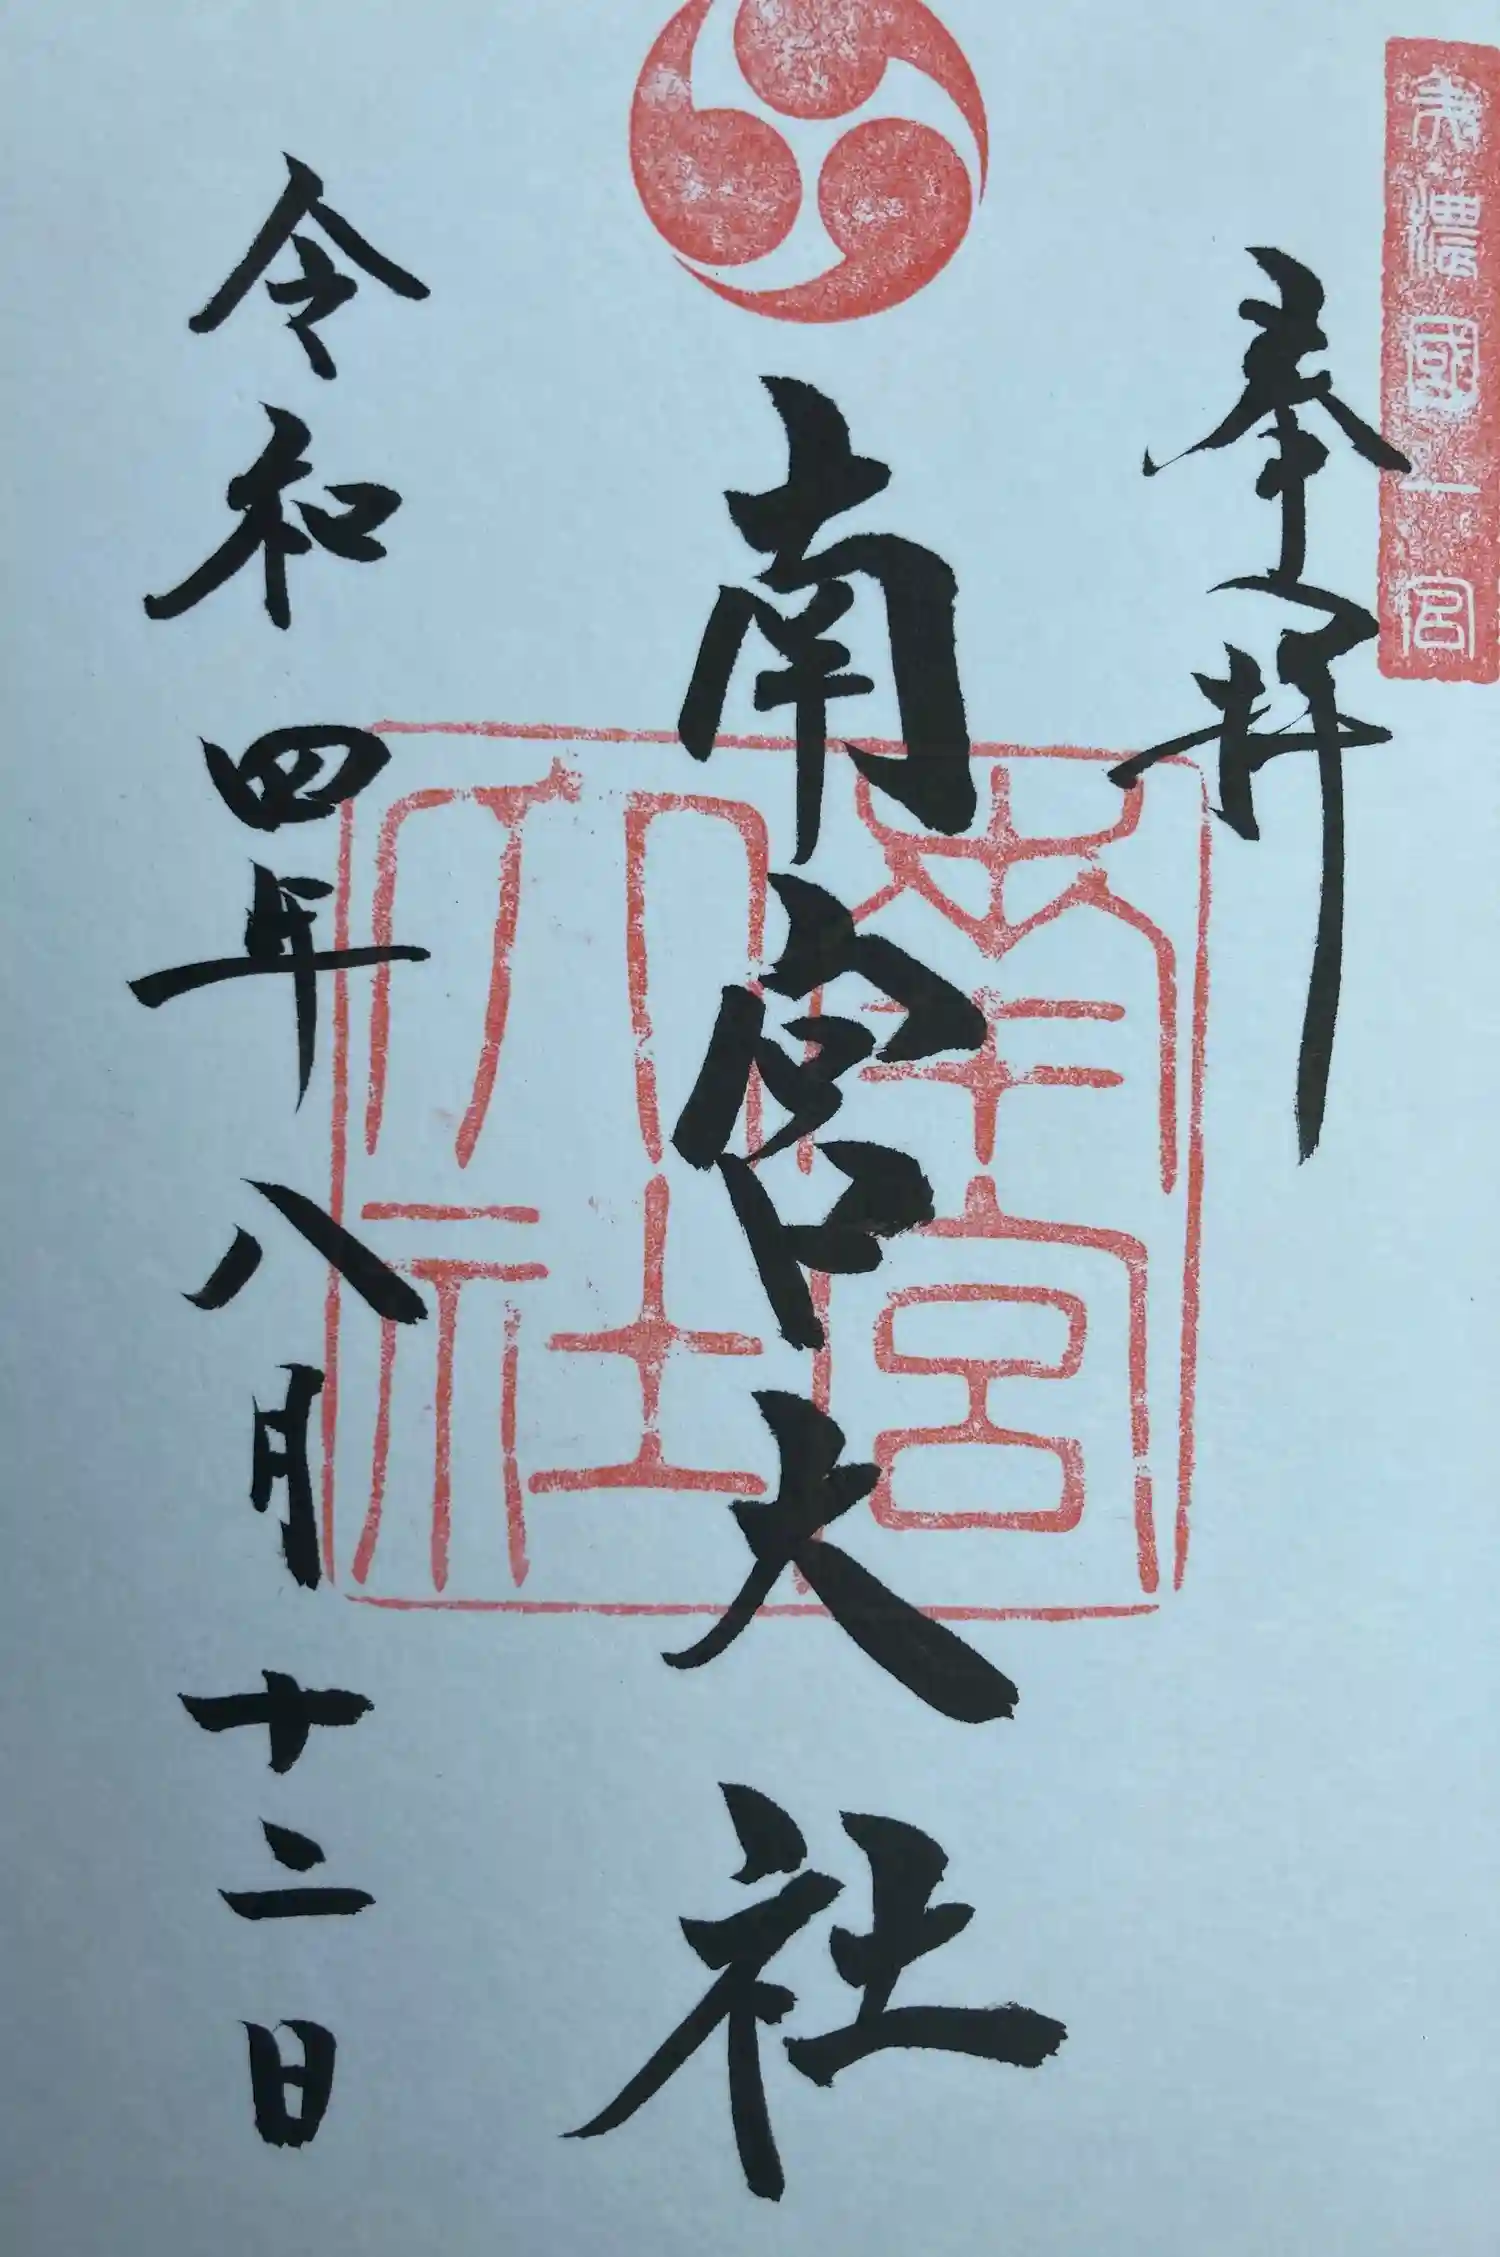 美濃國一宮
奉拝
南宮大社
南宮
大社
令和四年八月十二日